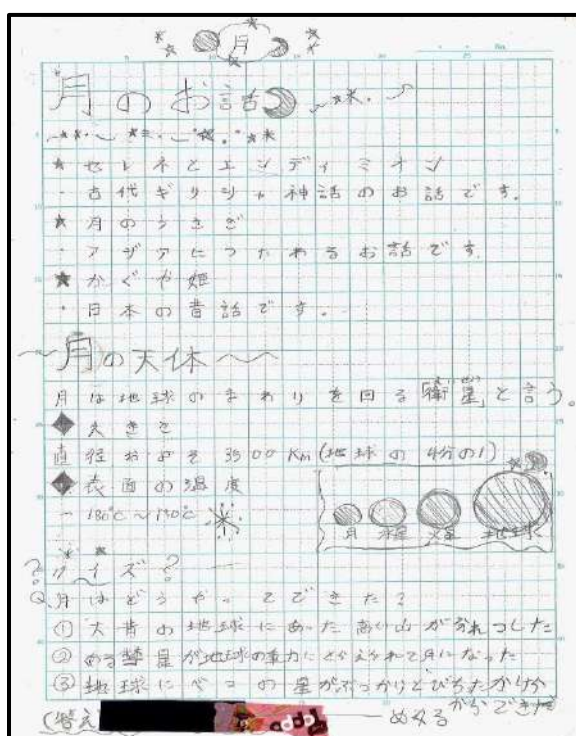 月
月のお話
★セレネとエンディミオン
・古代ギリシャ神話のお話です。
★月のうさぎ
・アジアにつたわるお話です
★かぐや姫
・日本の昔話です。
〜月の天体〜〜
月は地球のまわりを回る「衛星」と言う。
◆大きさ
直径およそ3500Km(地球の4分の1)
◆表面の温度
月 水星 火星 地球
クイズ?
Q.月はどうやってできた?
①大昔の地球にあった高い山がふんかした
②ある彗星が地球の重力にとらえられて月になった
③地球にべつの星がぶつかりとびちったかけらからできた
(答え)
めくる